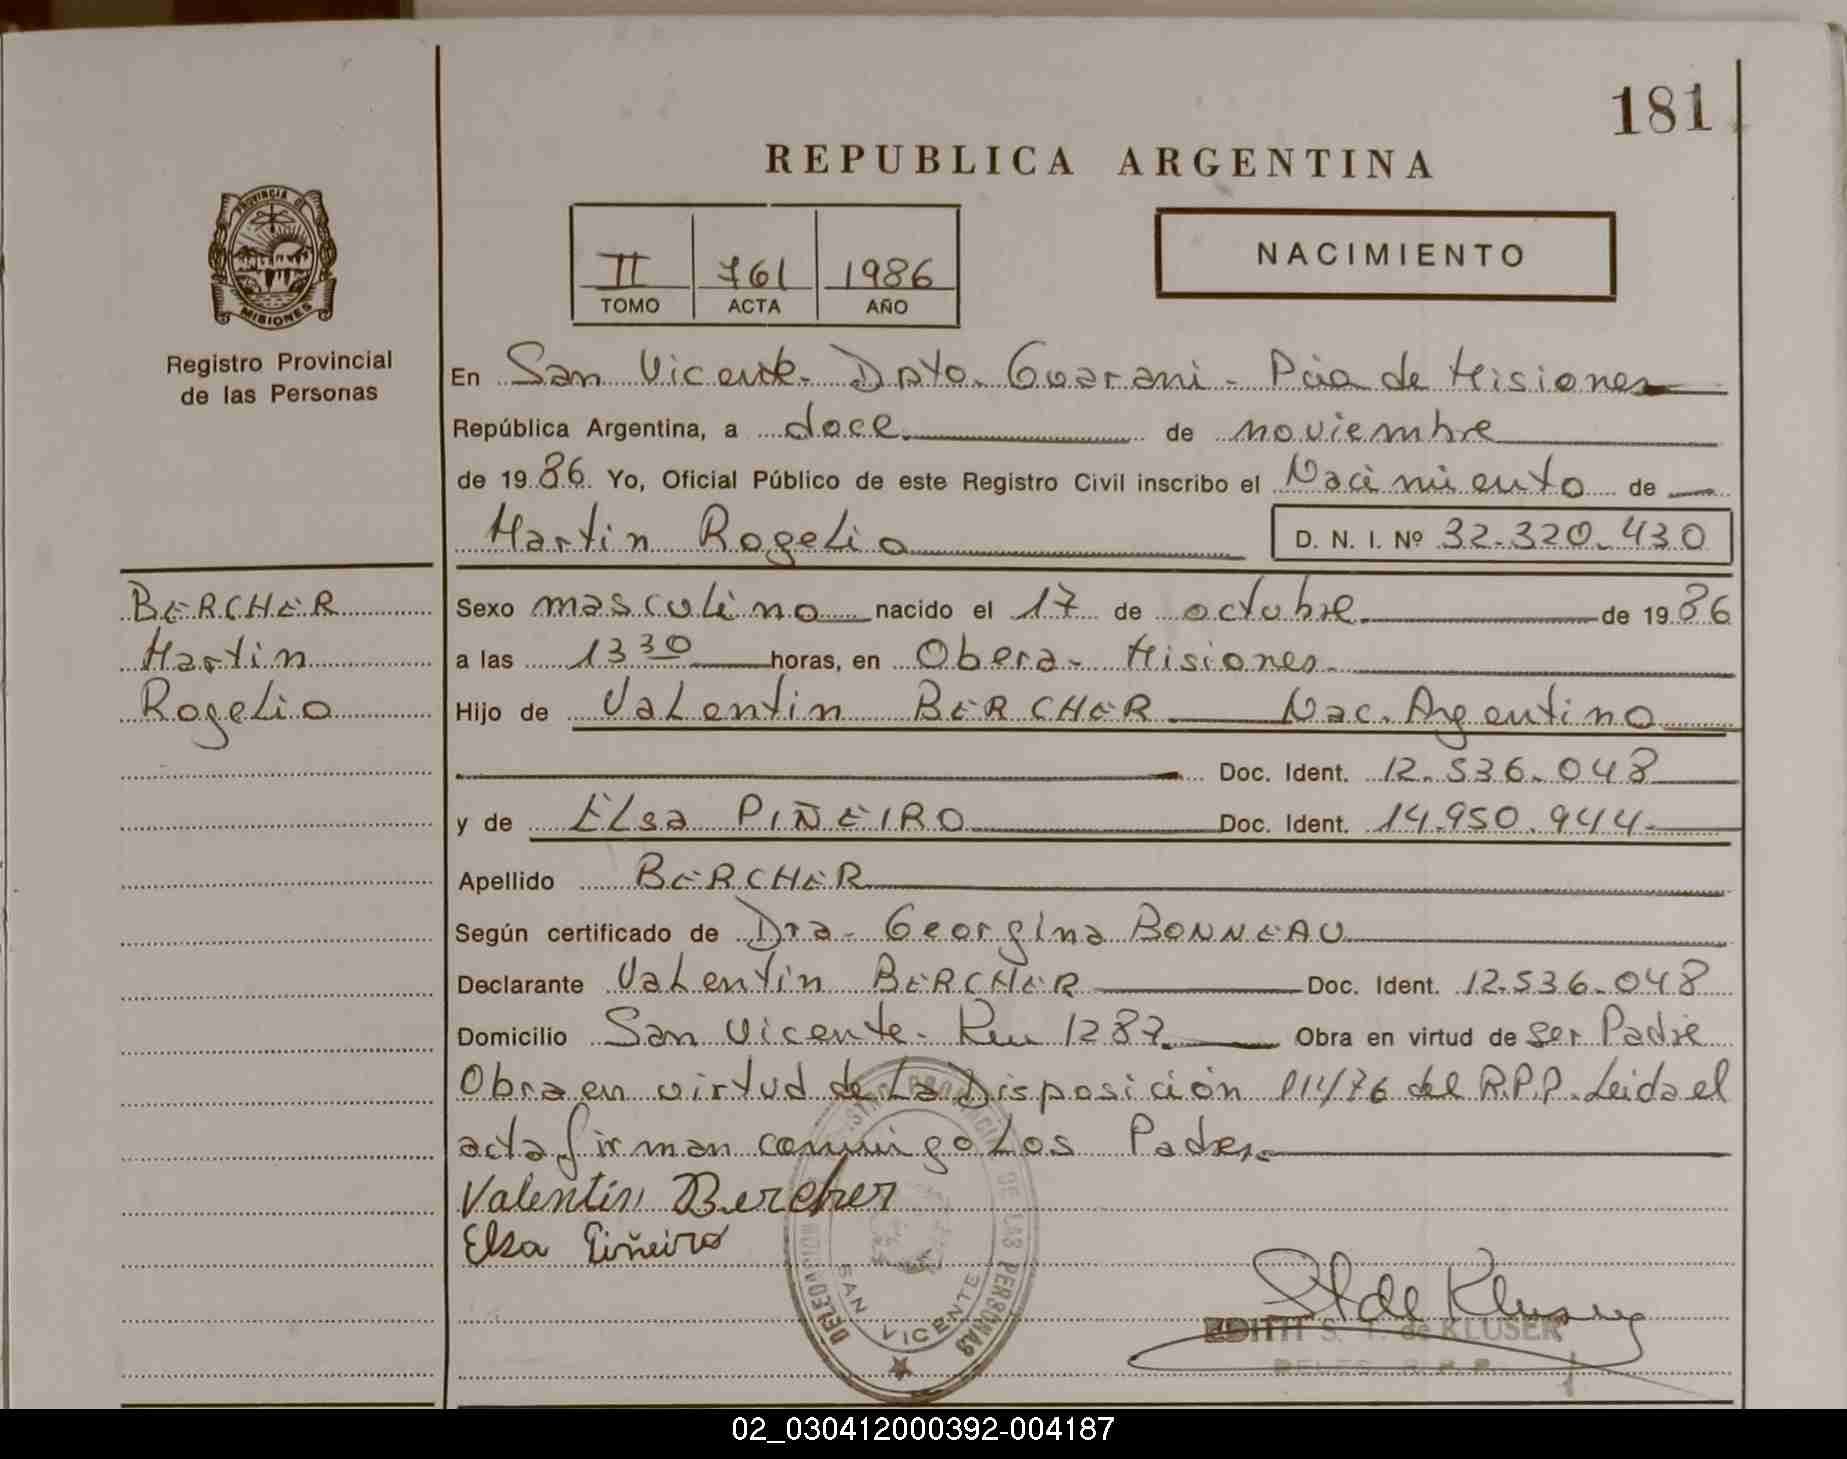 181
REPUBLICA ARGENTINA
PROVINCIA DE
MISIONES
Registro Provincial
de las Personas
II 761 1986
TOMO ACTA AÑO
NACIMIENTO
En San Vicente. Dpto. Guarani - Pcia de Misiones
República Argentina, a doce de noviembre
de 1986. Yo, Oficial Público de este Registro Civil inscribo el Nacimiento de
Martin Rogelio
D. N. I. Nº 32.320.430
BERCHER
Martin
Rogelio
Sexo masculino nacido el 17 de octubre de 1986
a las 13 30 horas, en Obera - Misiones
Hijo de Valentin BERCHER Nac. Argentino
Doc. Ident. 12.536.048
y de Elsa PIÑEIRO Doc. Ident. 14.950.944
Apellido BERCHER
Según certificado de Dra. Georgina BONNEAU
Declarante Valentin BERCHER Doc. Ident. 12.536.048
Domicilio San Vicente - Km 1287 Obra en virtud de ser Padre
Obra en virtud de La Disposición 111/76 del R.P.P. Leida el
acta firman conmigo Los Padres
Valentín Bercher
Elsa Piñeiro
DELEGACION
DE LAS PERSONAS
SAN VICENTE
St de Kluser
EDITH S. T. de KLUSER
DELEG. R. P. P.
02_030412000392-004187